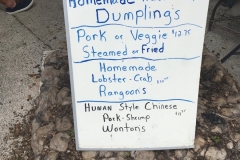 Homemade
Dumplings
Pork or Veggie $12.75
Steamed or Fried
Homemade
Lobster-Crab
Rangoons
Human Style Chinese
Pork-Shrimp
Wontons